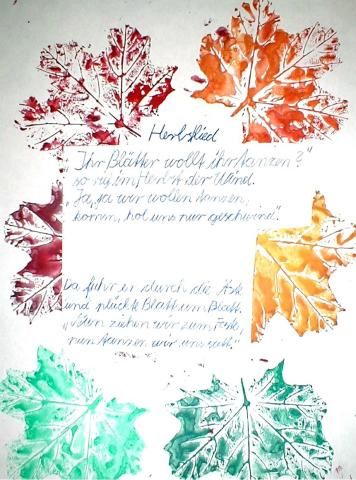 Herbstlied
„Ihr Blätter wollt ihr tanzen?“
so rief im Herbst der Wind.
„Ja, ja wir wollen tanzen,
komm, hol uns nur geschwind“.
Da fuhr er durch die Äste
und pflückte Blatt um Blatt.
„Nun ziehen wir zum Feste,
nun tanzen wir uns satt.“